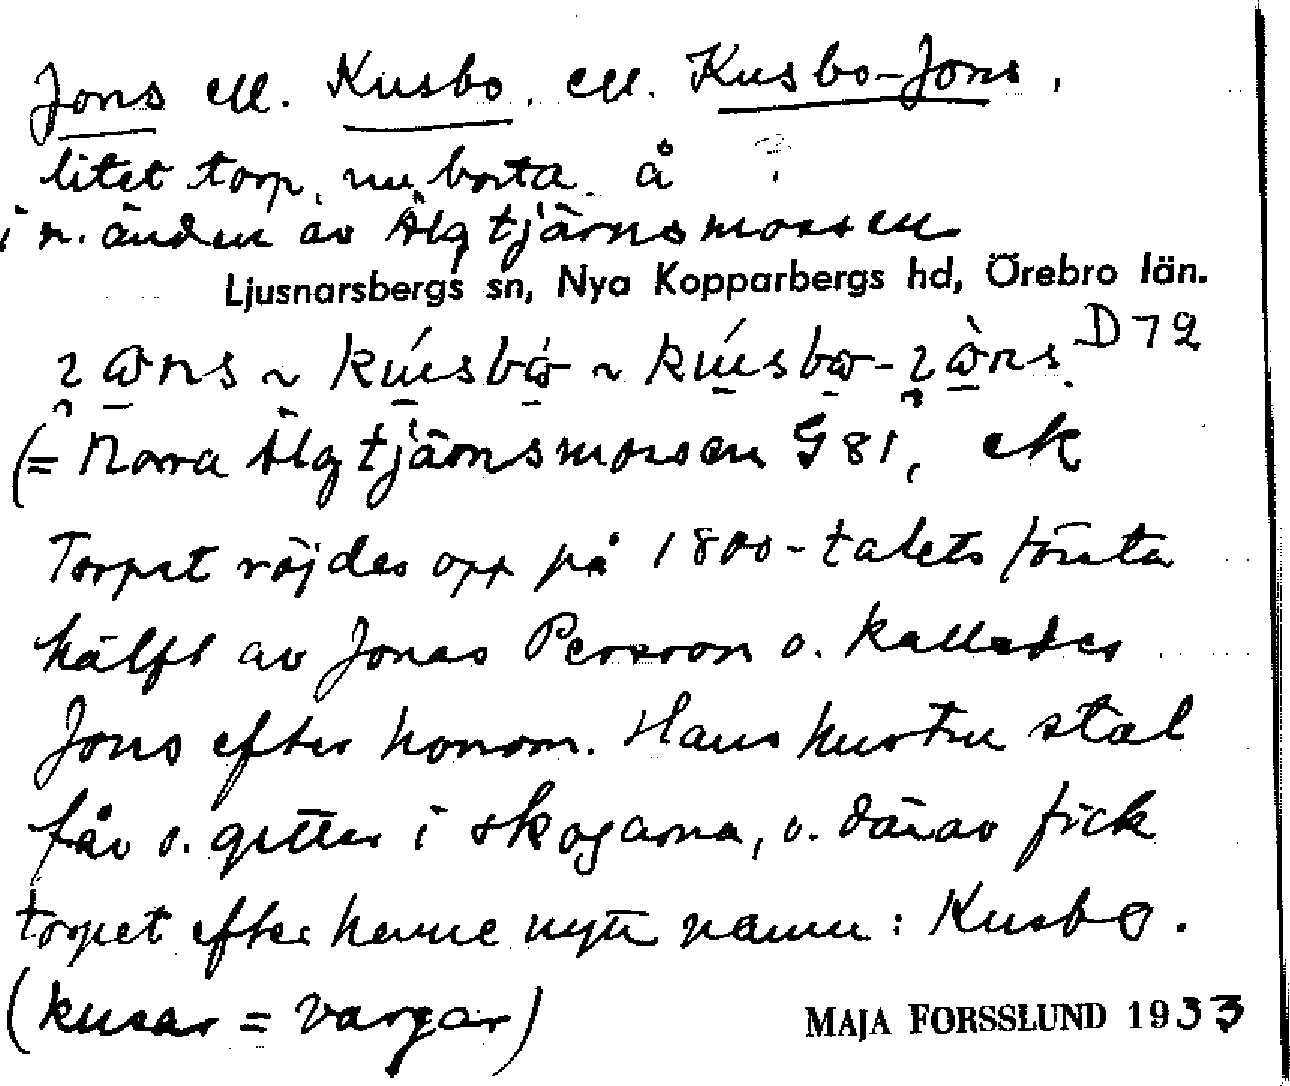 Jons ell. Kusbo ell. Kusbo-Jons.
litet torp, nu borta å ?
i n. änden av Älgtjärnsmossen
Ljusnarsbergs sn, Nya Kopparbergs hd, Örebro län.
D 72
(= Norra Älgtjärnsmossen G 81, ek
Torpet röjdes opp på 1800-talets första
hälft av Jonas Persson o. kallades
Jons efter honom. Hans hustru stal
får o. getter i skogarna, o. därav fick
torpet efter henne nytt namn: Kusbo.
(kusar = vargar)
MAJA FORSSLUND 1933